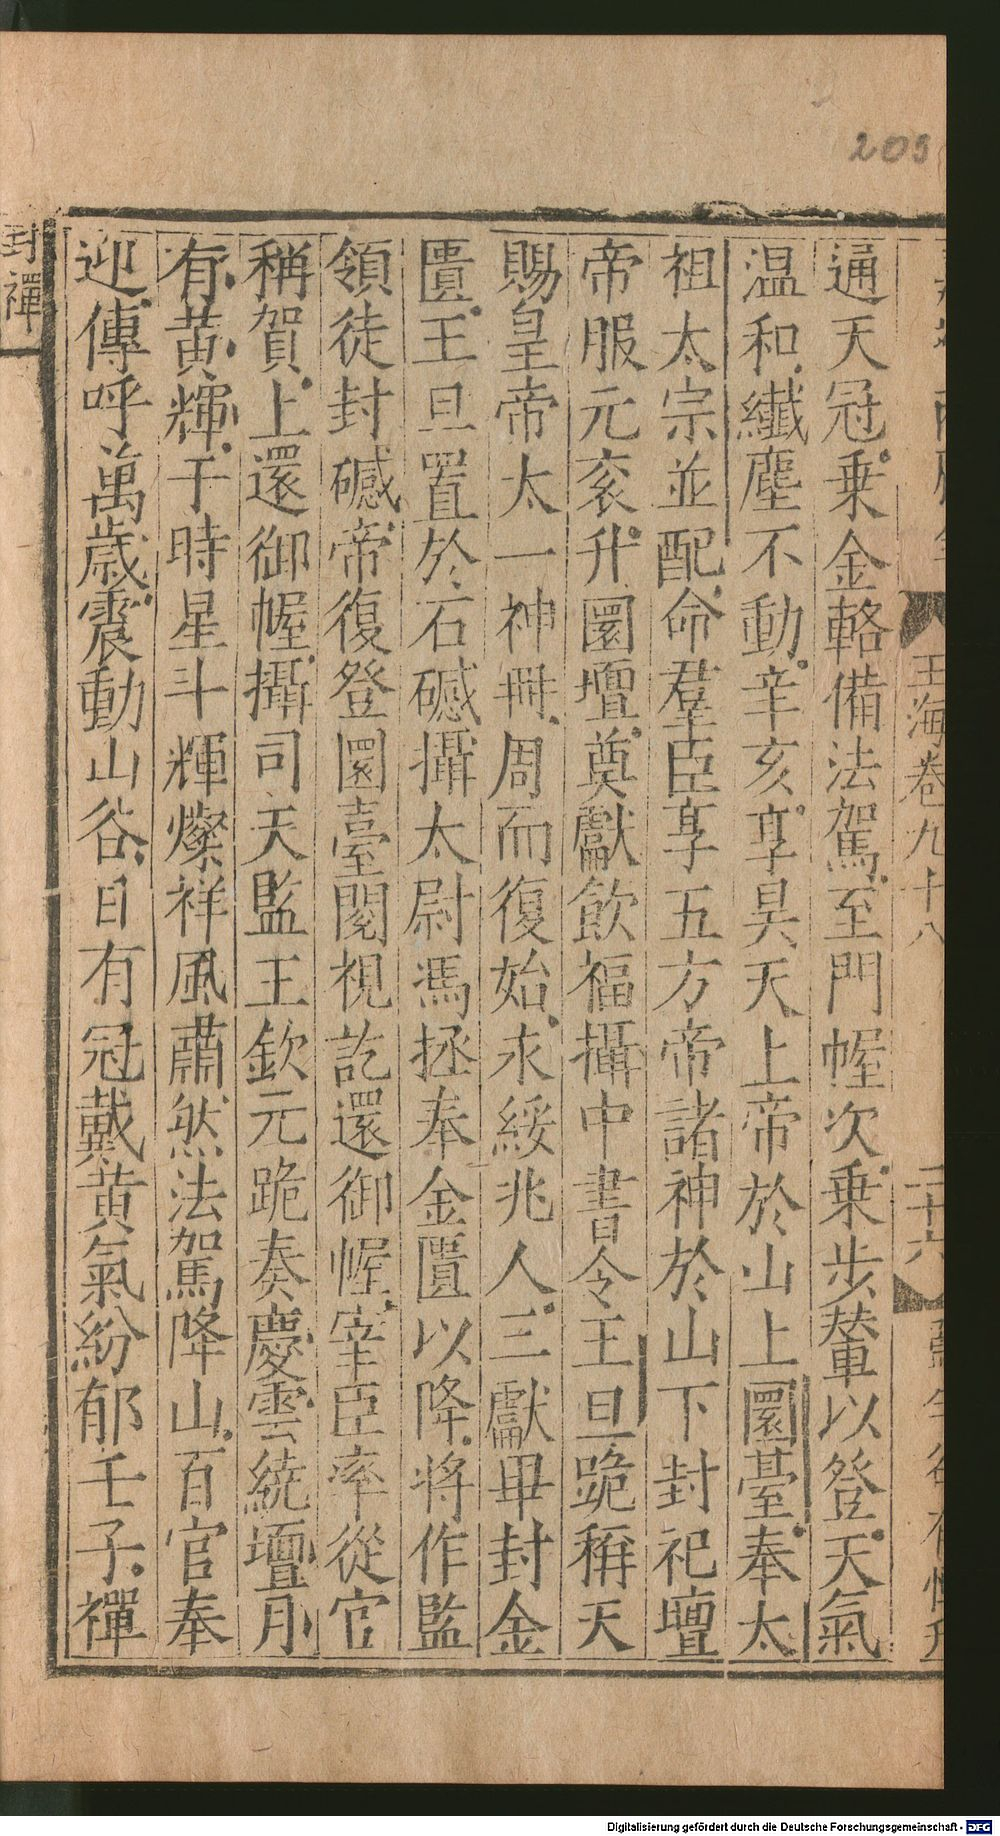 205
通天冠乗金輅備法駕至門幄次乗步輦以登天氣
温和纎塵不動辛亥享昊天上帝於山上圜臺奉太
祖太宗並配命羣臣享五方帝諸神於山下封祀壇
帝服元衮升圜壇奠獻飲福攝中書令王旦跪稱天
賜皇帝太一神冊周而復始永綏兆人三獻畢封金
匱王旦置於石䃭攝太尉馮拯奉金匱以降將作監
領徒封䃭帝復登圜臺閱視訖還御幄宰臣率從官
稱賀上還御幄攝司天監王欽元跪奏慶雲繞壇月
有黄輝于時星斗輝燦祥風肅然法駕降山百官奉
迎傳呼萬歲震動山谷日有冠戴黄氣紛郁壬子禪
玉海卷九十八
二十六
封禪
Digitalisierung gefördert durch die Deutsche Forschungsgemeinschaft - DFG